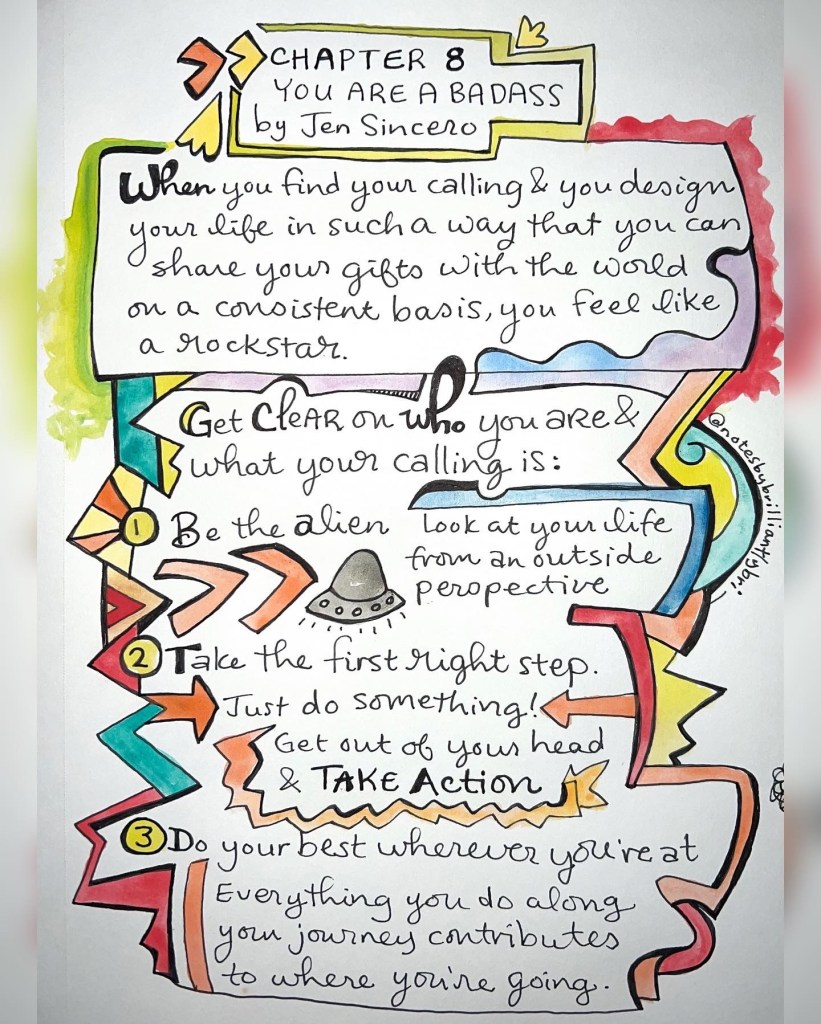 CHAPTER 8
YOU ARE A BADASS
by Jen Sincero
When you find your calling & you design
your life in such a way that you can
share your gifts with the world
on a consistent basis, you feel like
a rockstar.
Get CleAR on who you are &
what your calling is:
@notesbybrilliantlybri
1 Be the alien
Look at your life
from an outside
perspective
2 Take the first right step.
Just do something!
Get out of your head
& TAKE Action
3 Do your best wherever you're at
Everything you do along
your journey contributes
to where you're going.